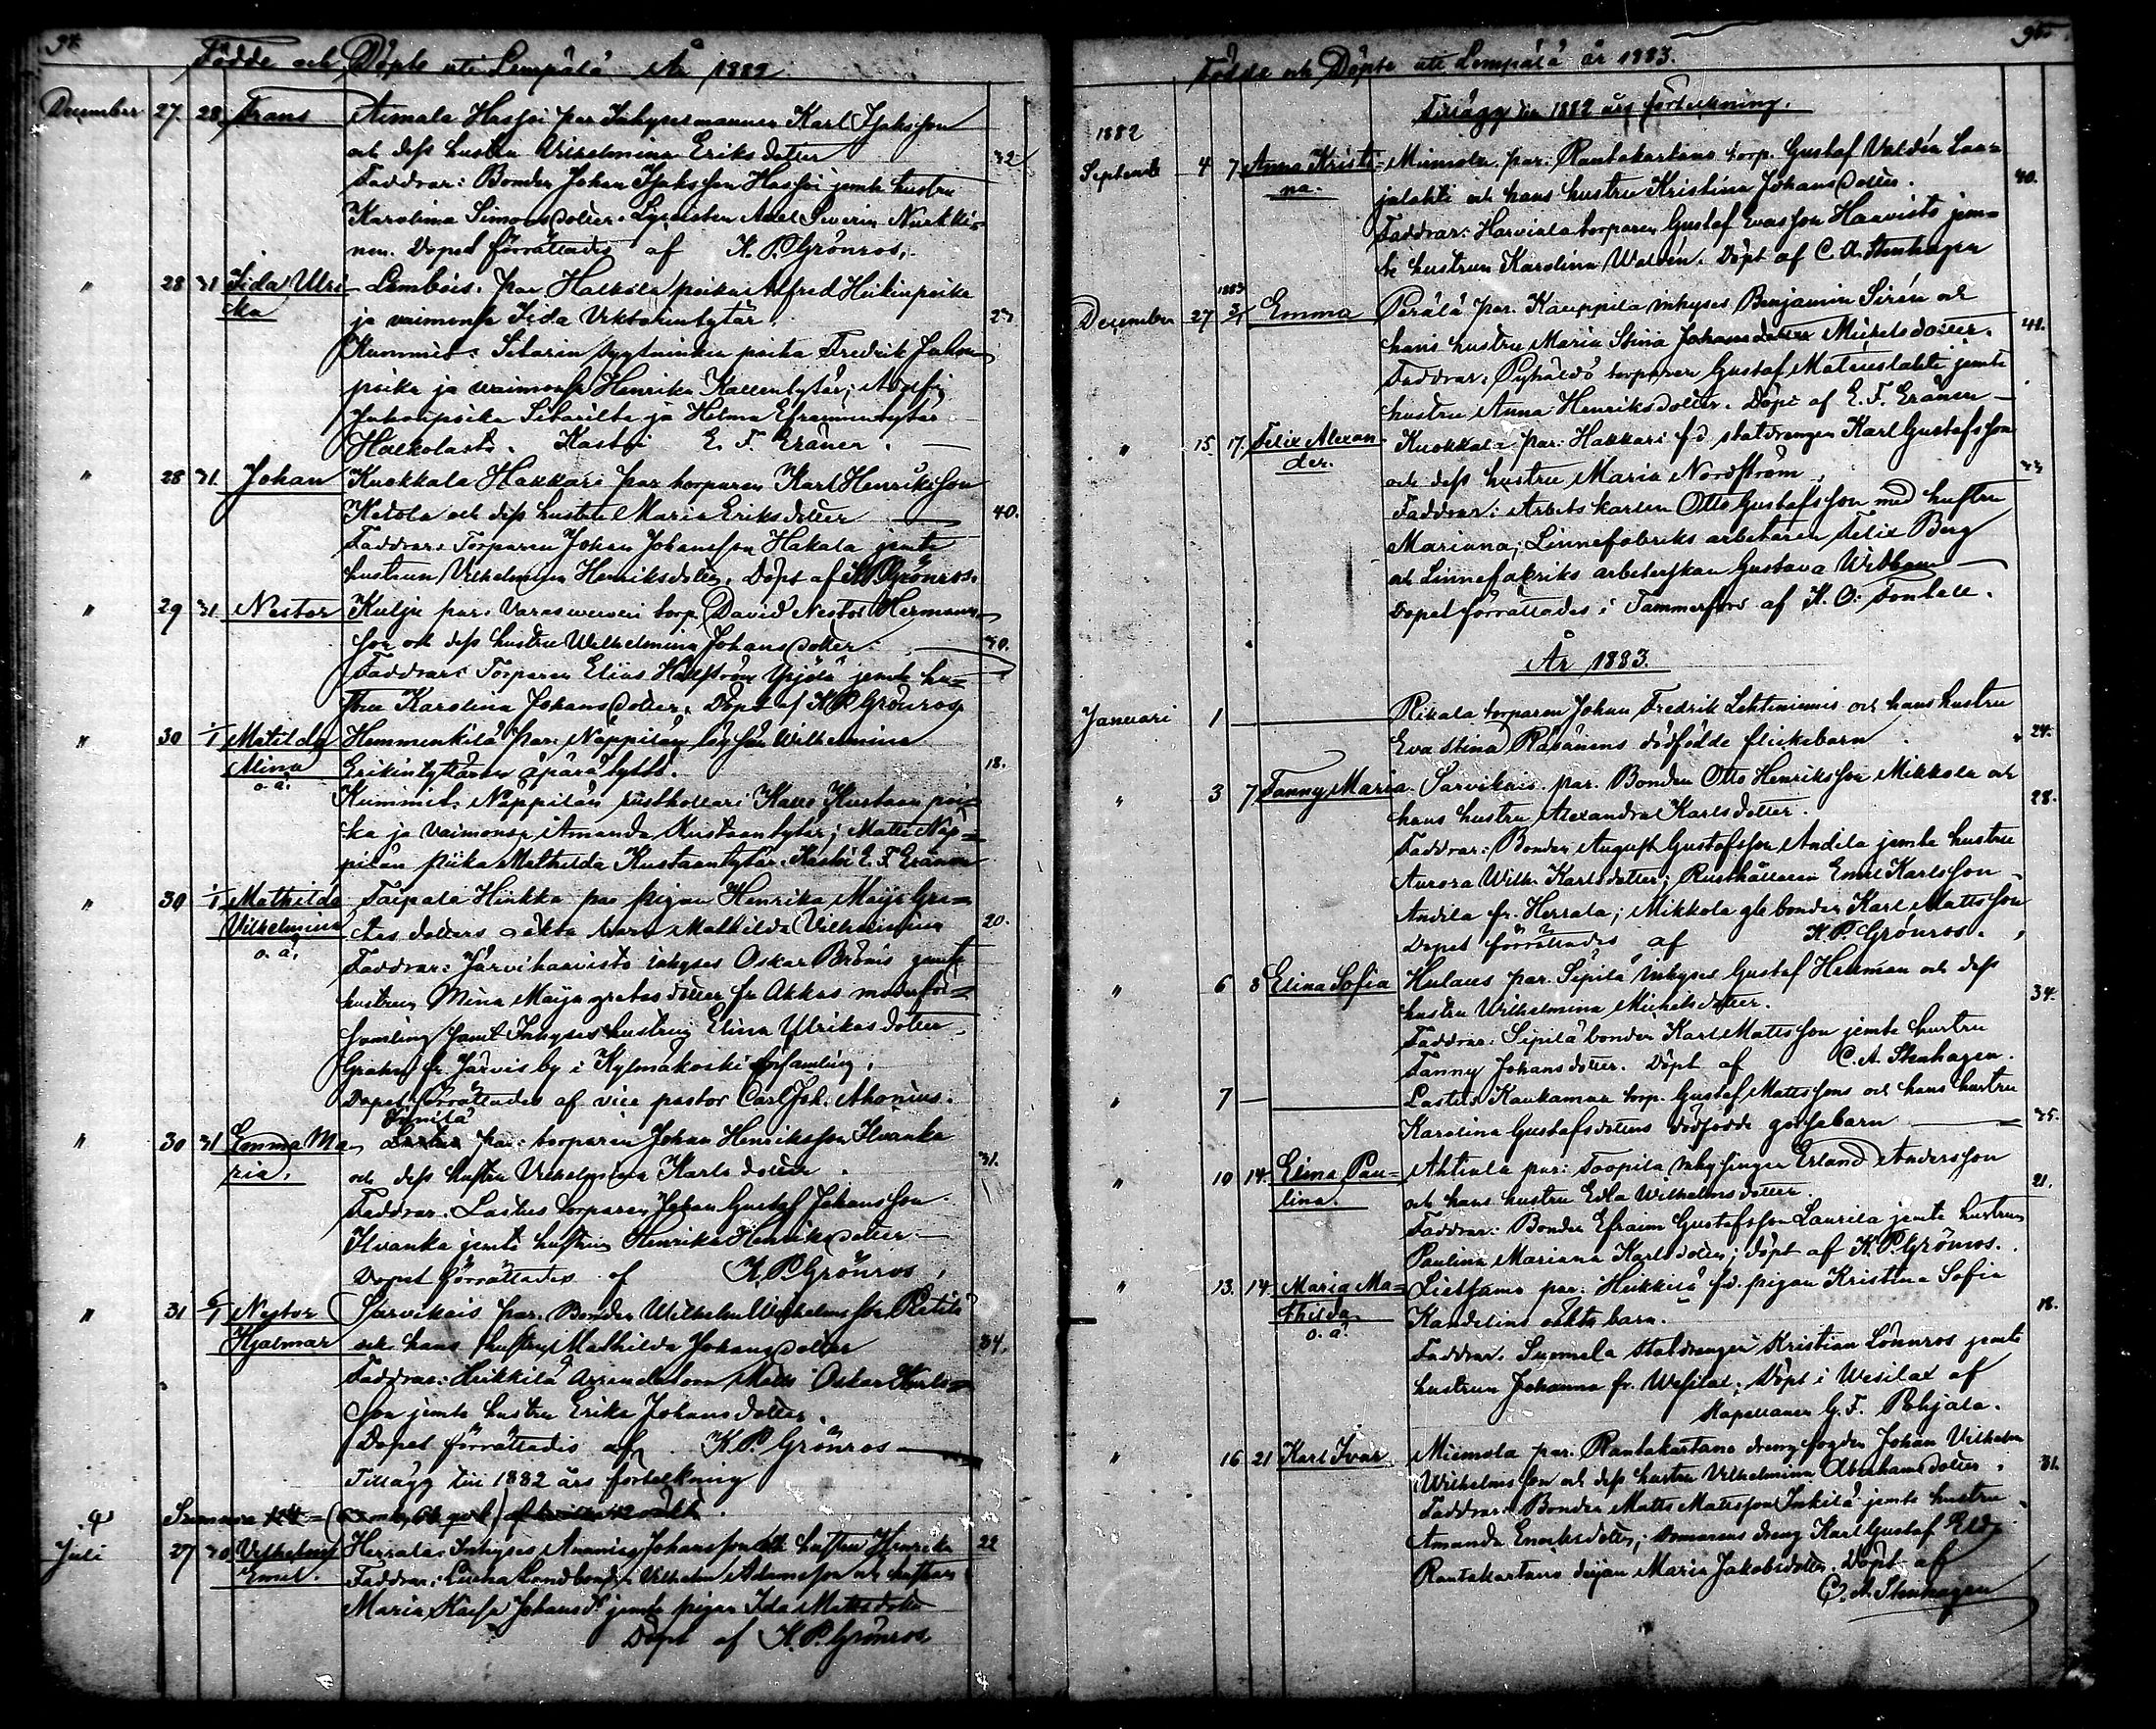 94
Födde och Döpte uti Lempälä År 1882
December 27. 28. Frans Aimala Hassoi par Inhysesmannen Karl Isaksson
och dess hustru Vilhelmina Eriksdotter 32
Faddrar: Bonden Johan Isaksson Hassoi jemte hustru
Karolina Simonsdotter, Axel Severin Nurkki-
nen. Dopet förrättades af K. P. Grönros.
" 28 31 Iida Ulri- Lembois. par Halkola poika Alfred Heikinpoika
cka ja vaimonsa Iida Viktorintytär. 23
Kummit: poika Fredrik Juhon
poika ja vaimonsa Henrika Kallentytär; Adolf
Juhonpoika ja Helma Efraimintytär
Halkolasta. Kastoi E. F. Eränen.
" 28 31. Johan Kuokkala Hakkari par torparen Karl Henriksson
Ketola och dess hustru Maria Eriksdotter 40.
Faddrar: Torparen Johan Johansson Hakala jemte
hustrun Vilhelmina Henriksdotter. Döpt af K. P. Grönros.
" 29 31. Nestor Kulju par. torp. David Nestor Hermans-
son och dess hustru Wilhelmina Johansdotter. 30.
Faddrar: Torparen Elias Hällström jemte hu-
stru Karolina Johansdotter. Döpt af K. P. Grönros
" 30 1/1 Matilda Hemmenkilä par: Näppilän Wilhelmina
Mina Erikintyttären äpärä tyttö. 18.
o. ä.
Kummit. Näppilän rusthollari Kalle Kustaan poi-
ka ja vaimonsa Amanda Kustaantytär; Matti Näp-
pilän piika Mathilda Kustaantytär. Kastoi E. F. Eränen
" 30 1/1 Mathilda Taipale Hinkka par pigan Henrika Maija Gre-
Vilhelmina tas dotters oäkta barn Mathilda Vilhelmina 20.
o. ä.
Faddrar: Järvihaavisto inhyses Oskar jemte
hustrun Mina Maija gretas dotter fr. Akkas moderför-
samling samt Inhyses hustrun Elina Ulrikas dotter
fr. Järvis by i Kylmäkoski församling.
Dopet förrättades af vice pastor Carl Joh. Ahonius.
" 30 31 Emma Ma- par: torparen Johan Henriksson Ilvanka
ria. och dess hustru Vilhelmina Karlsdotter. 31.
Faddrar: Lastus torparen Johan Gustaf Johansson
Ilvanka jemte hustrun Henrika Henriksdotter.
Dopet förrättades af K. P. Grönros.
" 31 6/1 Nestor Sarvikais par. Bonden Wilhelm Wilhelmsson
Hjalmar och hans hustru Mathilda Johansdotter 34.
Faddrar: Heikkilä Arrendatorn Matts Oskar Karls-
son jemte hustru Erika Johansdotter.
Dopet förrättades af K. P. Grönros
Tillägg till 1882 års förtekning
Summa
Juli 27 30 Vilhelm Herrala Inhyses Ananias Johansson och hustru Henrika 22
Emil. Faddrar: Landbonden Vilhelm Adamsson och hustrun
Maria Kaisa Johansd. jemte pigan Ida Mattsdotter
Döpt af K. P. Grönros
95.
Födde och Döpte uti Lempälä år 1883.
Tillägg till 1882 års förtekning.
1882
September 4 7 Anna Kristi- Miemola par: Rantakartano torp. Gustaf Valdén Laa-
na. jalahti och hans hustru Kristina Johansdotter. 40.
Faddrar: Harviala torparen Gustaf Evasson Haavisto jem-
te hustrun Karolina Waldén. Döpt af C. A. Stenhagen
1883
December 27 2/1 Emma Perälä par. Kauppila inhyses Benjamin Sirén och
hans hustru Maria Stina Michelsdotter. 41.
Faddrar: Pyhäldö torparen Gustaf jemte
hustru Anna Henriksdotter. Döpt af E. F. Eränen
" 15 17. Felix Alexan- Kuokkala par: Hakkari f.d. statdrengen Karl Gustafsson
der. och dess hustru Maria Nordström. 33
Faddrar: Arbetskarlen Otto Gustafsson med hustru
Mariana; Linnefabriks arbetaren Felix Berg
och Linnefabriks arbeterskan Gustava Widbom
Dopet förrättades i Tammerfors af K. O. Fonsell.
År 1883.
Januari 1 Rikala torparen Johan Fredrik Lehtiniemis och hans hustru
Eva Stina dödfödde flickebarn 24.
" 3 7 Fanny Maria Sarvikais. par. Bonden Otto Henriksson Mikkola och
hans hustru Alexandra Karlsdotter. 28.
Faddrar: Bonden August Gustafsson Andila jemte hustru
Aurora Wilh. Karlsdotter; Rusthållaren Emil Karlsson
Andila fr. Herrala; Mikkola gle bonden Karl Mattsson
Dopet förrättades af K. P. Grönros.
" 6 8 Elina Sofia Hulaus par. Sipilä inhyses Gustaf Heuman och dess
hustru Wilhelmina Michelsdotter. 34.
Faddrar: Sipilä bonden Karl Mattsson jemte hustru
Fanny Johansdotter. Döpt af C. A. Stenhagen.
" 7 Lastus Kaukaman torp. Gustaf Mattssons och hans hustru
Karolina Gustafsdotters dödfödde gossebarn 35.
" 10 14. Elina Pau- Ahtiala par: Toopila inhysingen Erland Andersson
lina. och hans hustru Edla Wilhelmsdotter 21.
Faddrar: Bonden Efraim Gustafsson Laurila jemte hustrun
Paulina Mariana Karlsdotter; döpt af K. P. Grönros.
" 13. 14. Maria Ma- Lietsamo par: Heikkilä f.d. pigan Kristina Sofia
thilda Kandelins oäkta barn. 18.
o. ä.
Faddrar: Suomela statdrengen Kristian Lönnros jemte
hustrun Johanna fr. Wesilax; Döpt i Wesilax af
Kapellanen G. F. Pohjala.
" 16 21 Karl Ivar Miemola par. Rantakartano drengfogden Johan Vilhelm
Wilhelmsson och dess hustru Vilhelmina Abrahamsdotter. 31.
Faddrar: Bonden Matts Mattsson Inkilä jemte hustru
Amanda Enoksdotter; dreng Karl Gustaf
Rantakartano dejan Maria Jakobsdotter. Döpt af
C. A. Stenhagen